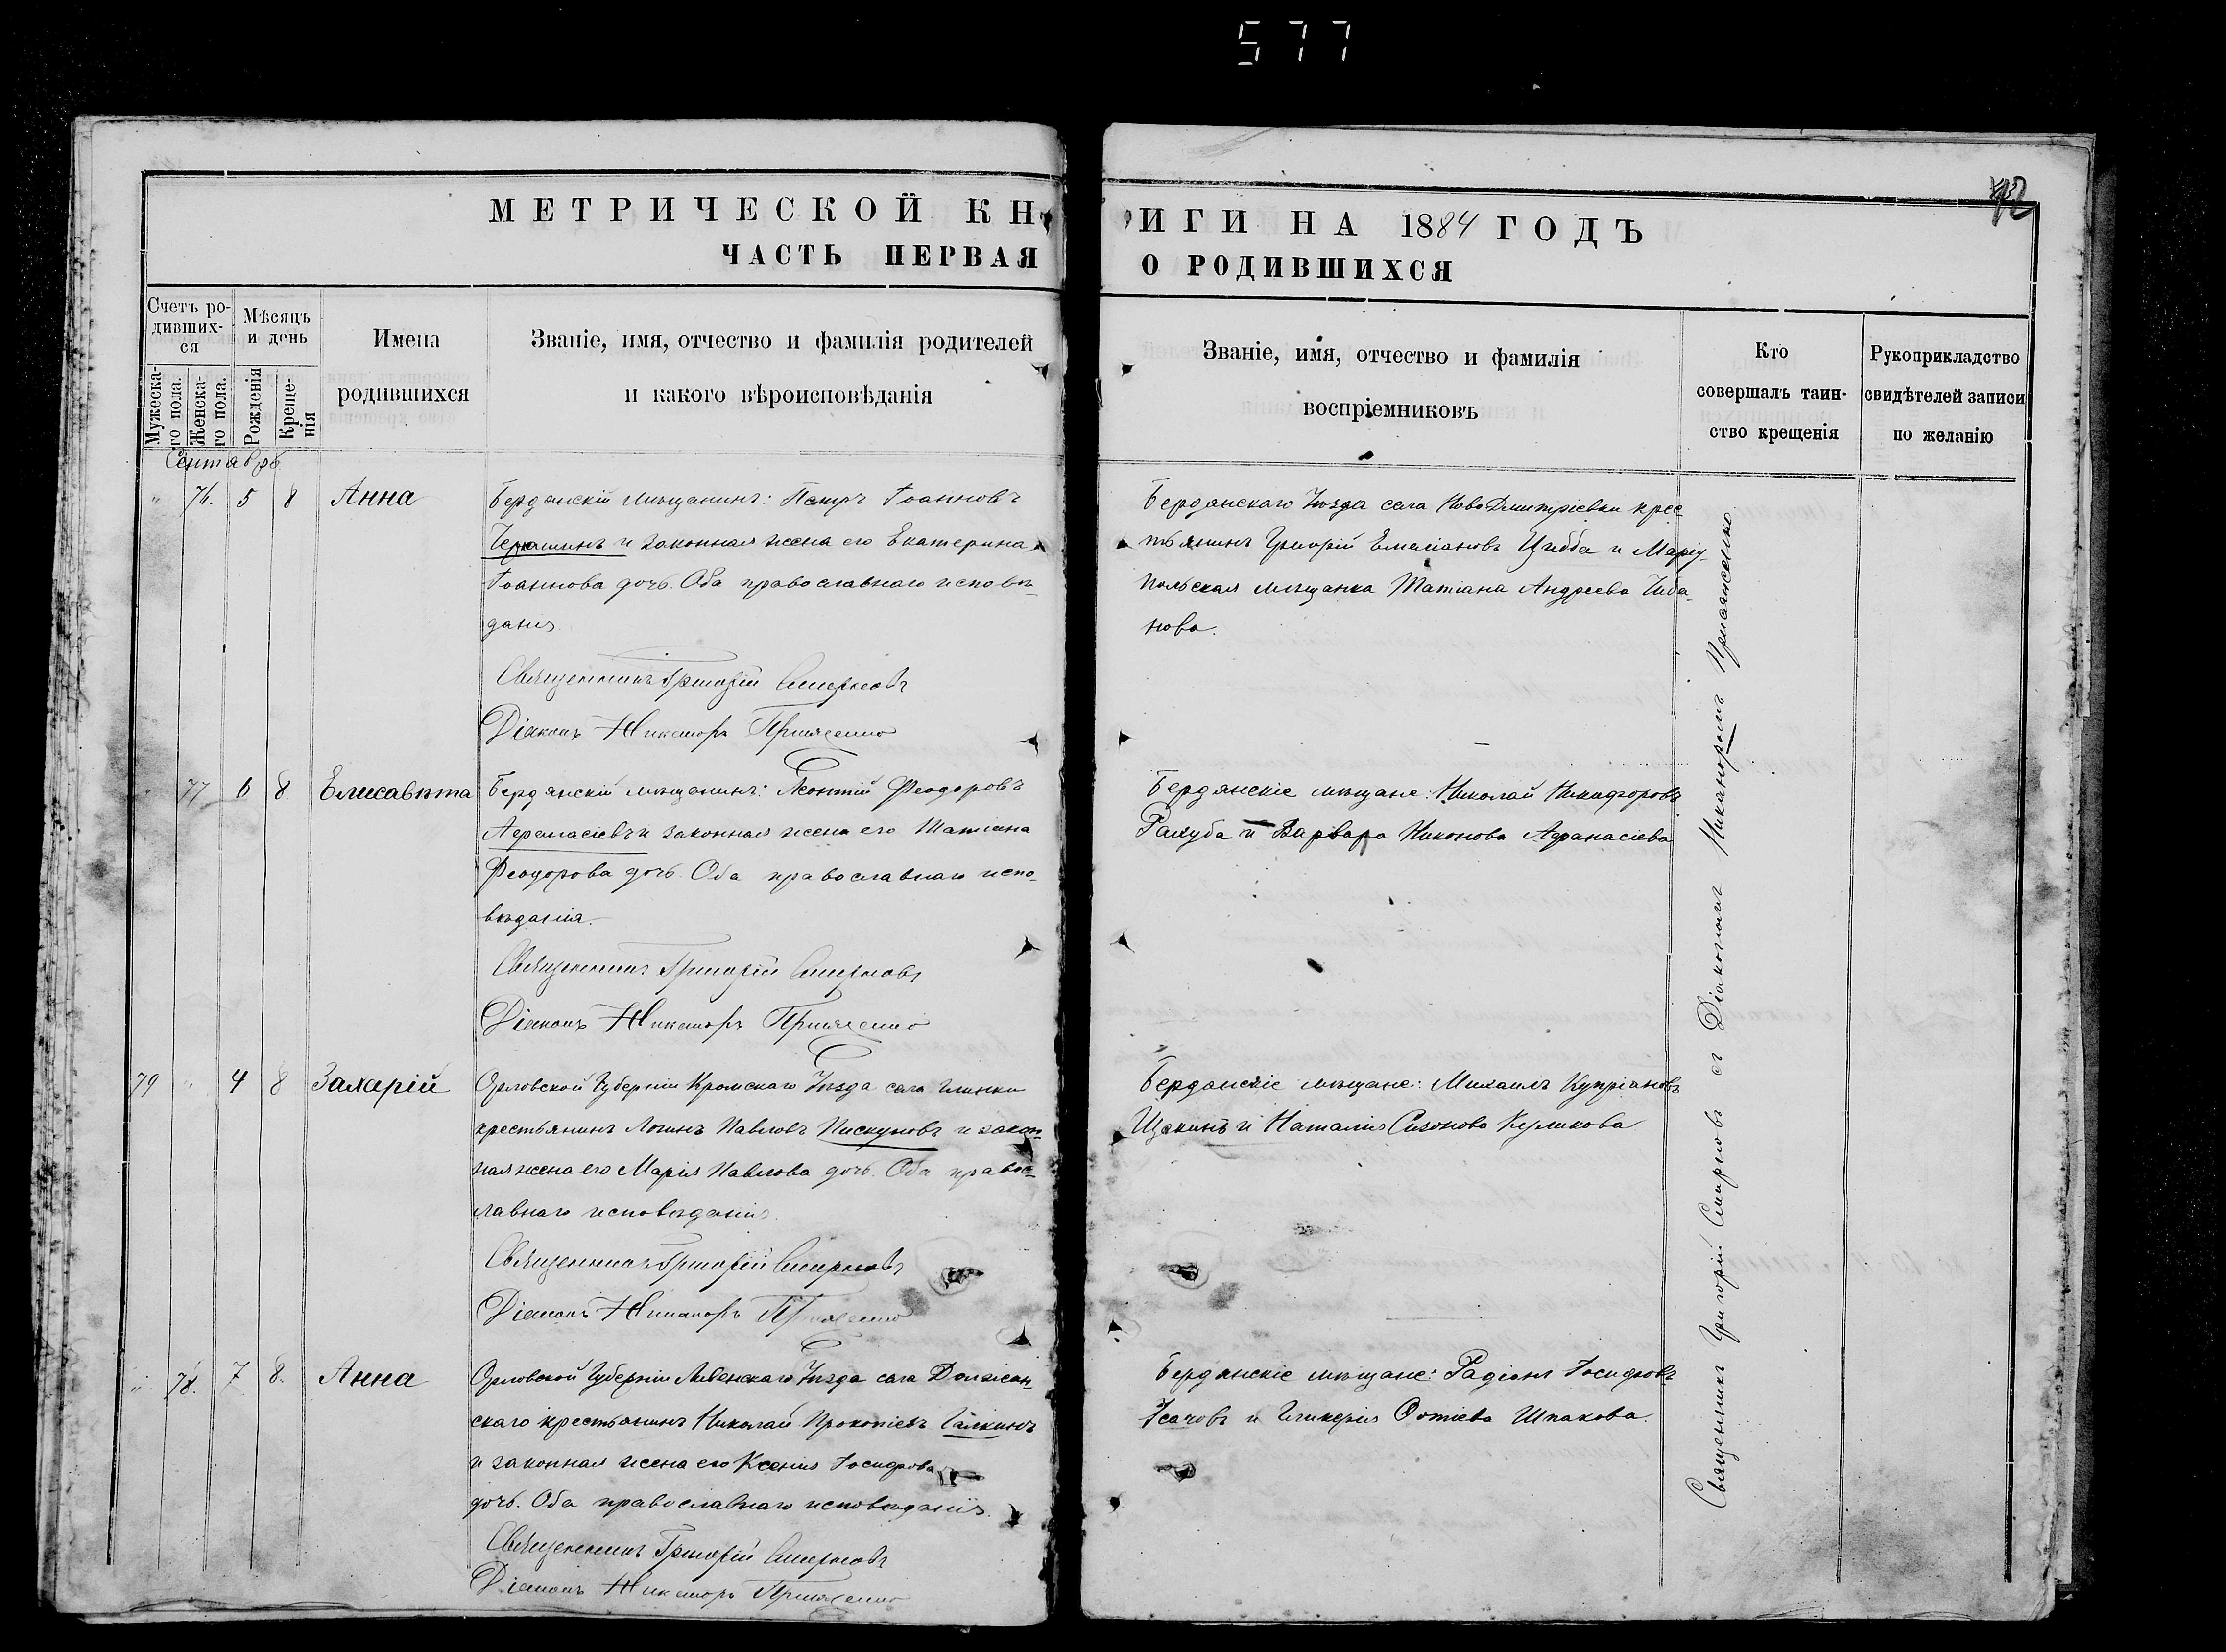 577
МЕТРИЧЕСКОЙ КН
ЧАСТЬ ПЕРВАЯ
Счетъ ро-
дивших-
ся
Мѣсяцъ
и день
Мужеска-
го пола.
Женска-
го пола.
Рожденія
Креще-
нія
Имена
родившихся
Званіе, имя, отчество и фамилія родителей
и какого вѣроисповѣданія
Сентябрь
" 76. 5 8 Анна
Бердянскій мѣщанинъ: Петръ Іоанновъ
и законная жена его Екатерина
Іоаннова дочь. Оба православнаго исповѣ-
данія.
Священникъ Григорій Смирновъ
Діаконъ Никаноръ
77 6 8. Елисавѣта
Бердянскій мѣщанинъ: Леонтій Феодоровъ
Афанасіевъ и законная жена его Татіана
Феодорова дочь. Оба православнаго испо-
вѣданія.
Священникъ Григорій Смирновъ
Діаконъ Никаноръ
79 " 4 8 Захарій
Орловской Губерніи Кромскаго Уѣзда села Глинки
крестьянинъ Логинъ Павловъ Пискуновъ и закон-
ная жена его Марія Павлова дочь. Оба правос-
лавнаго исповѣданія.
Священникъ Григорій Смирновъ
Діаконъ Никаноръ
" 78. 7 8. Анна
Орловской Губерніи Ливенскаго Уѣзда села
скаго крестьянинъ Николай Прокопіевъ Галкинъ
и законная жена его Ксенія Іосифова
дочь. Оба православнаго исповѣданія.
Священникъ Григорій Смирновъ
Діаконъ Никаноръ
ИГИ НА 1884 ГОДЪ
О РОДИВШИХСЯ
Званіе, имя, отчество и фамилія
воспріемниковъ
Кто
совершалъ таин-
ство крещенія
Рукоприкладство
свидѣтелей записи
по желанію
Бердянскаго Уѣзда села Ново Дмитріевки крес-
тьянинъ Григорій Емеліановъ Цыбба и Маріу-
польская мѣщанка Татіана Андреева
нова.
Бердянскіе мѣщане: Николай Никифоровъ
и Варвара Никонова Афанасіева
Бердянскіе мѣщане: Михаилъ Купріановъ
Щекинъ и Наталія Сизонова Куликова
Бердянскіе мѣщане: Радіонъ Іосифовъ
Усачовъ и Гликерія Фотіева Шпакова.
Священникъ Григорій Смирновъ съ Діакономъ Никаноромъ